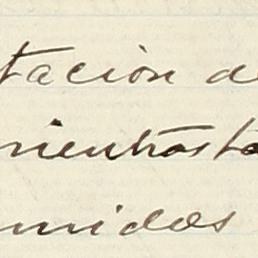 tación de
mientras ta
midos